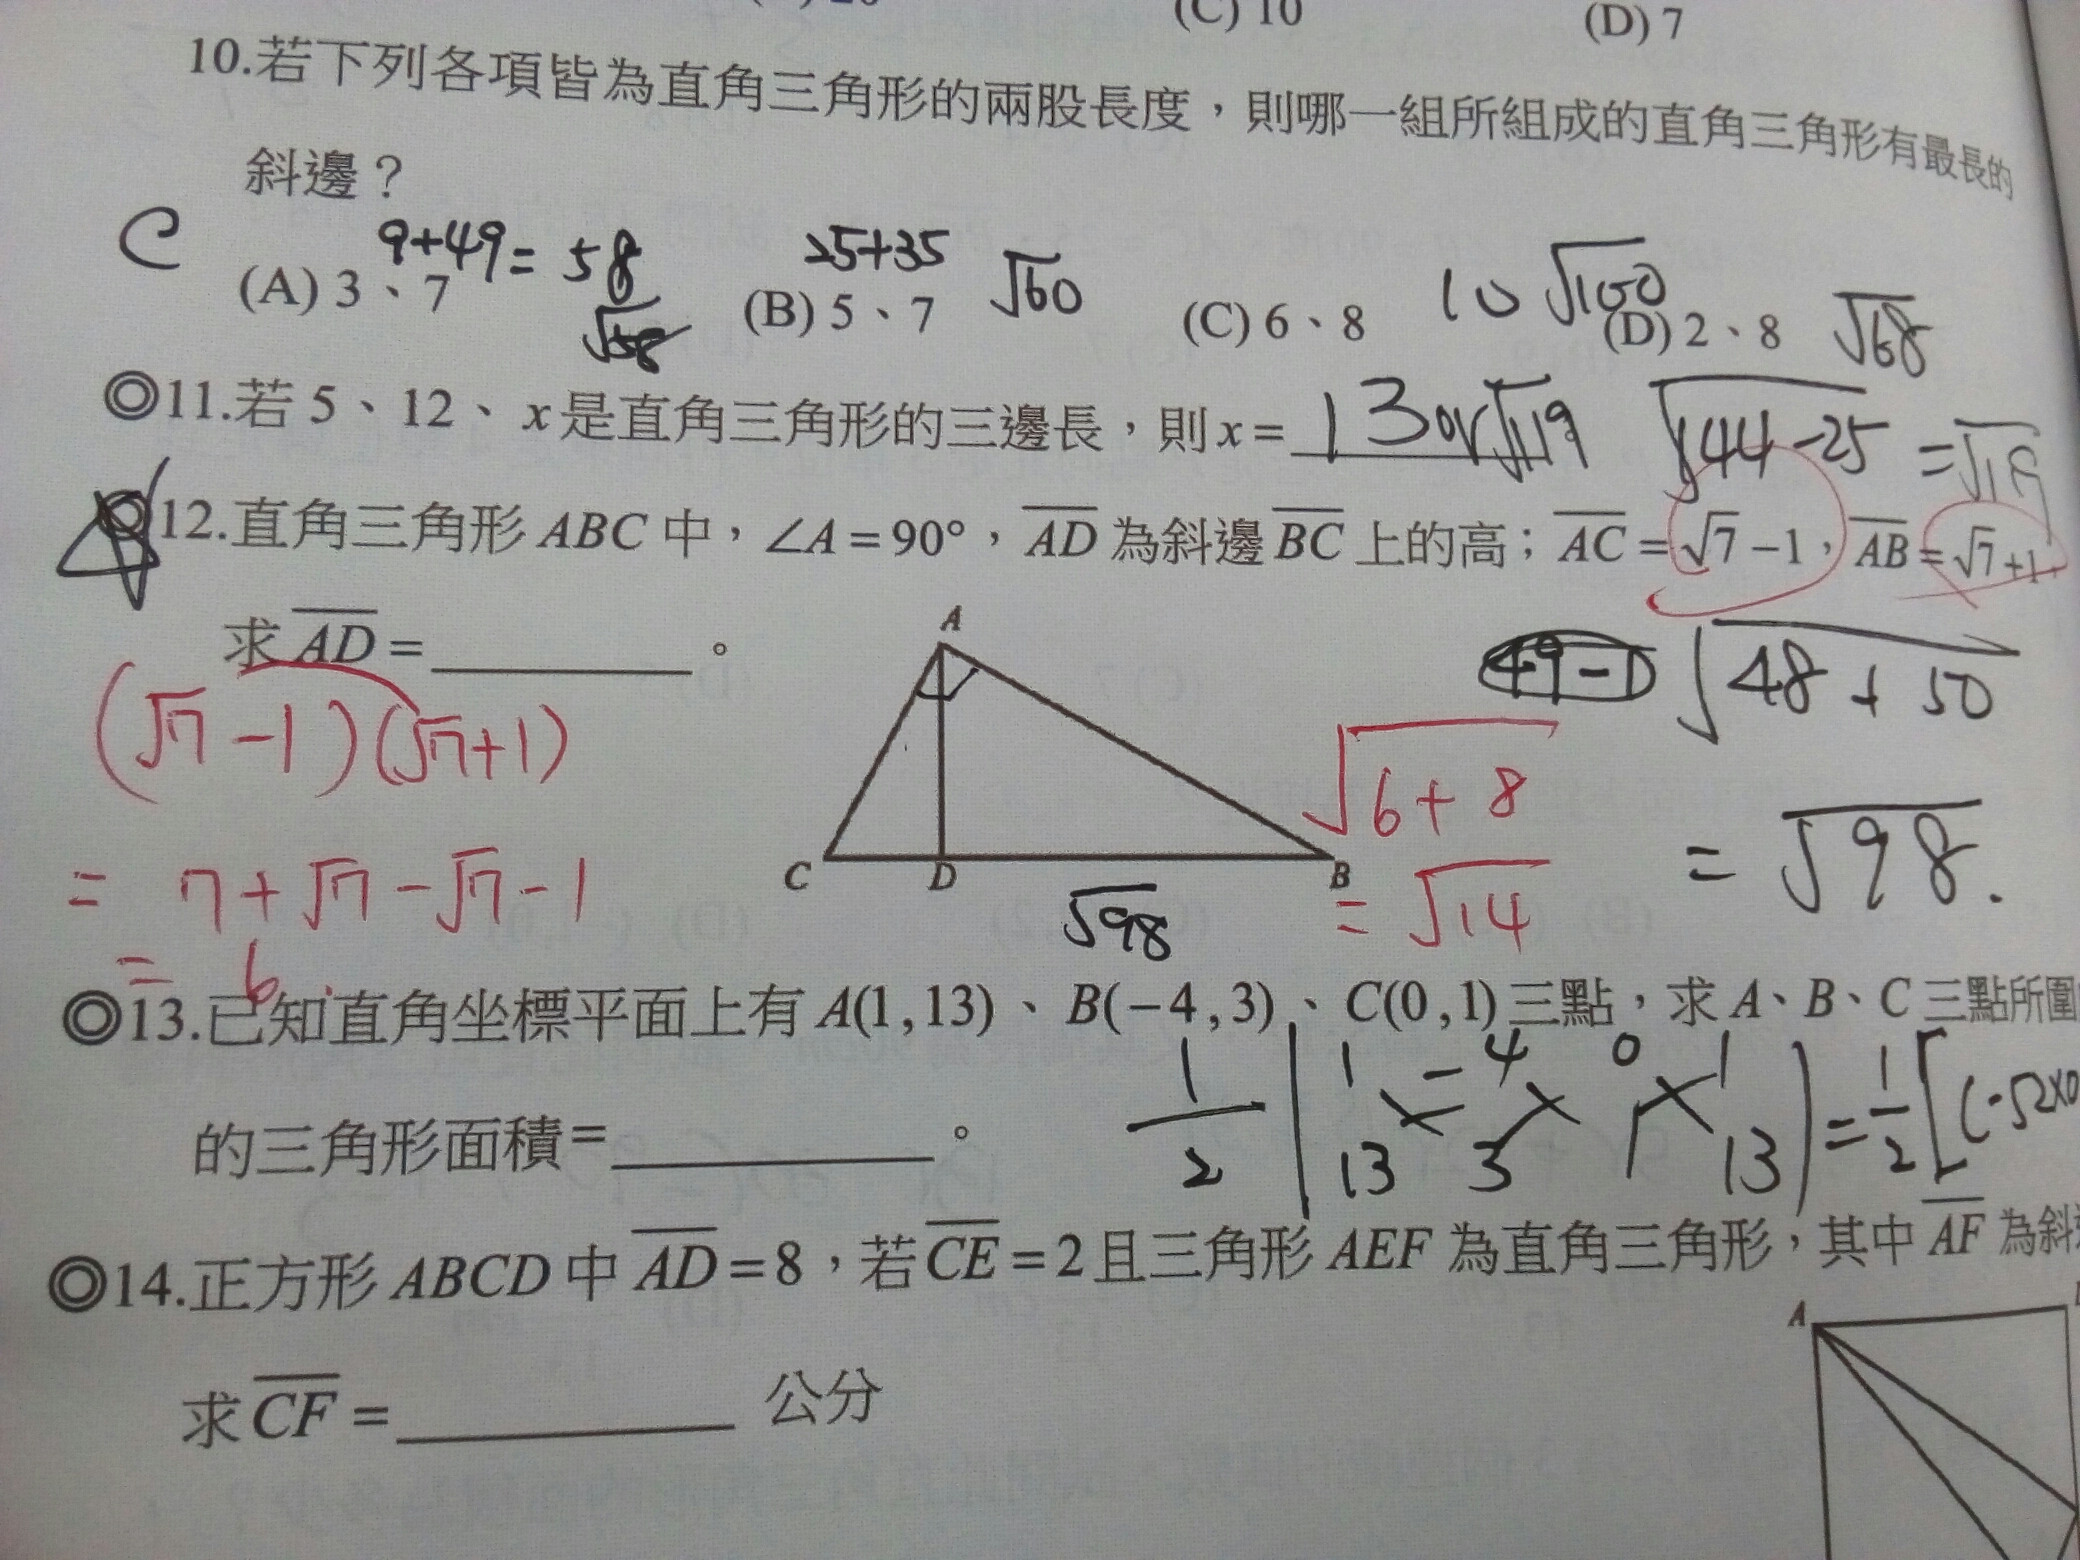 (C) 10 (D) 7
10.若下列各項皆為直角三角形的兩股長度，則哪一組所組成的直角三角形有最長的
斜邊？
C 9+49=58 25+35 √60 10 √100 √68
(A) 3、7 (B) 5、7 (C) 6、8 (D) 2、8
√58
◎11.若 5、12、x是直角三角形的三邊長，則x= 13or√119 √144-25 =√119
◎12.直角三角形 ABC 中，∠A=90°，AD 為斜邊 BC 上的高；AC=√7-1，AB=√7+1，
求 AD= 。
A
49-1 √48+50
(√7-1)(√7+1)
√6+8
C D B
= 7+√7-√7-1 =√14 =√98.
√98
= 6.
◎13.已知直角坐標平面上有 A(1,13)、B(-4,3)、C(0,1)三點，求 A、B、C 三點所圍
1 1 -4 0 1 = 1 [(-52×0
2 13 3 1 13 2
的三角形面積= 。
◎14.正方形 ABCD 中 AD=8，若 CE=2且三角形 AEF 為直角三角形，其中 AF 為斜
A
求 CF= 公分